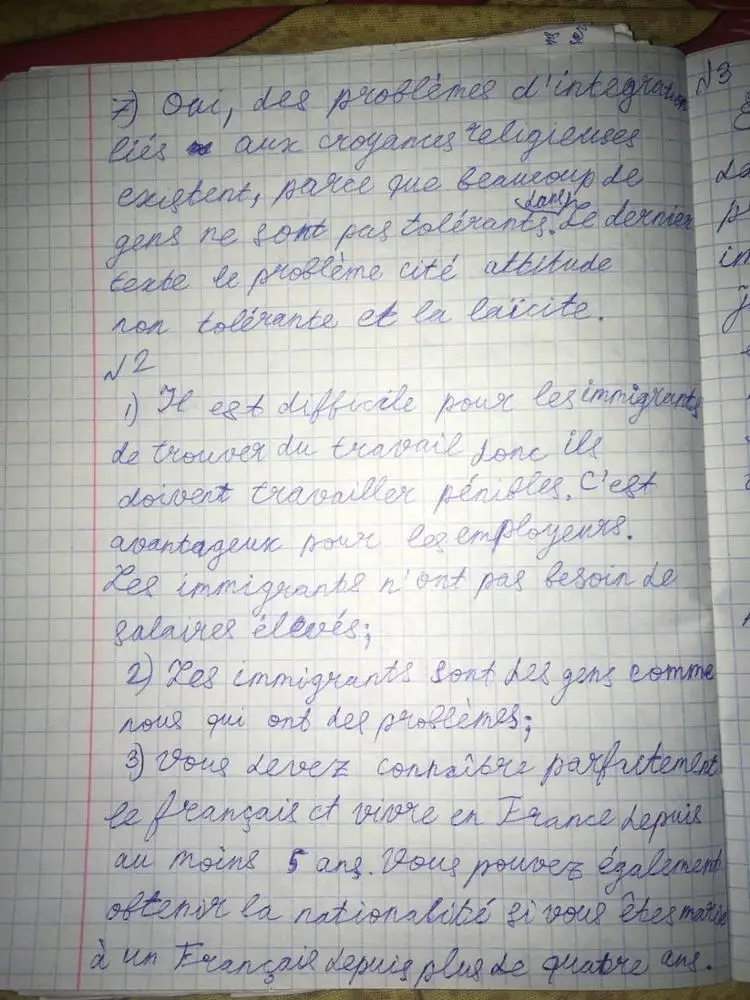 7) Oui, des problèmes d'integration
liés aux croyances religieuses
existent, parce que beaucoup de
gens ne sont pas tolérants. dans Le dernier
texte le problème cité attitude
non tolérante et la laïcite.
№2
1) Il est difficile pour les immigrants
de trouver du travail donc ils
doivent travailler pénibles. C'est
avantageux pour les employeurs.
Les immigrants n'ont pas besoin de
salaires élevés;
2) Les immigrants sont des gens comme
nous qui ont des problèmes;
3) Vous devez connaître parfaitement
le français et vivre en France depuis
au moins 5 ans. Vous pouvez également
obtenir la nationalité si vous êtes
à un Français depuis plus de quatre ans.
№3